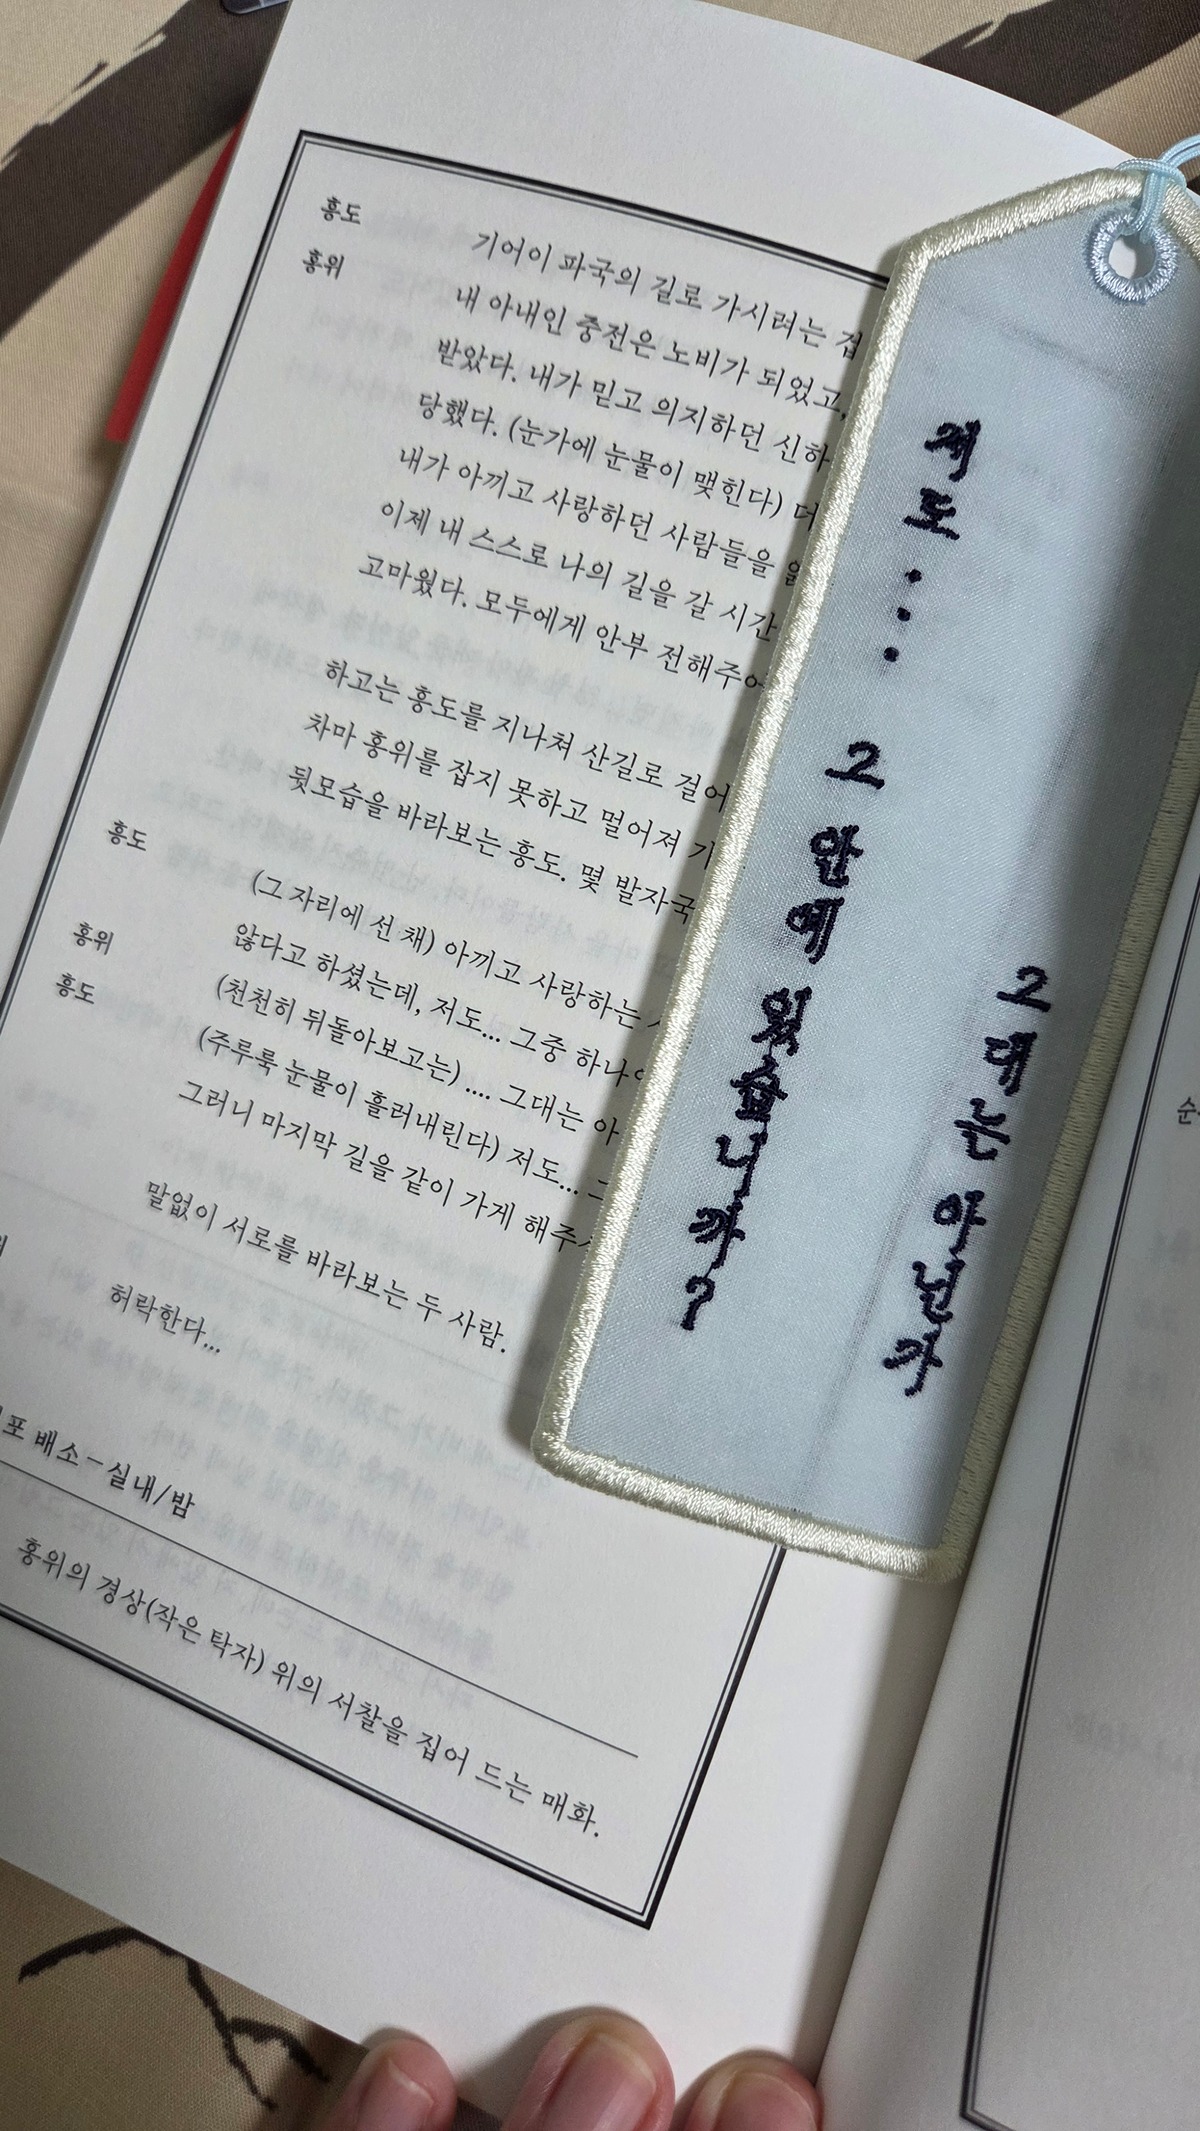 홍도 기어이 파국의 길로 가시려는 겁
홍위 내 아내인 중전은 노비가 되었고,
받았다. 내가 믿고 의지하던 신하
당했다. (눈가에 눈물이 맺힌다) 더
내가 아끼고 사랑하던 사람들을
이제 내 스스로 나의 길을 갈 시간
고마웠다. 모두에게 안부 전해주어
하고는 홍도를 지나쳐 산길로 걸어
차마 홍위를 잡지 못하고 멀어져 가
뒷모습을 바라보는 홍도. 몇 발자국
홍도 (그 자리에 선 채) 아끼고 사랑하는
않다고 하셨는데, 저도... 그중 하나
홍위 (천천히 뒤돌아보고는) .... 그대는 아
홍도 (주루룩 눈물이 흘러내린다) 저도... 그
그러니 마지막 길을 같이 가게 해주
말없이 서로를 바라보는 두 사람.
허락한다...
포 배소-실내/밤
홍위의 경상(작은 탁자) 위의 서찰을 집어 드는 매화.
그대는 아닌가
저도... 그 안에 있습니까?
순